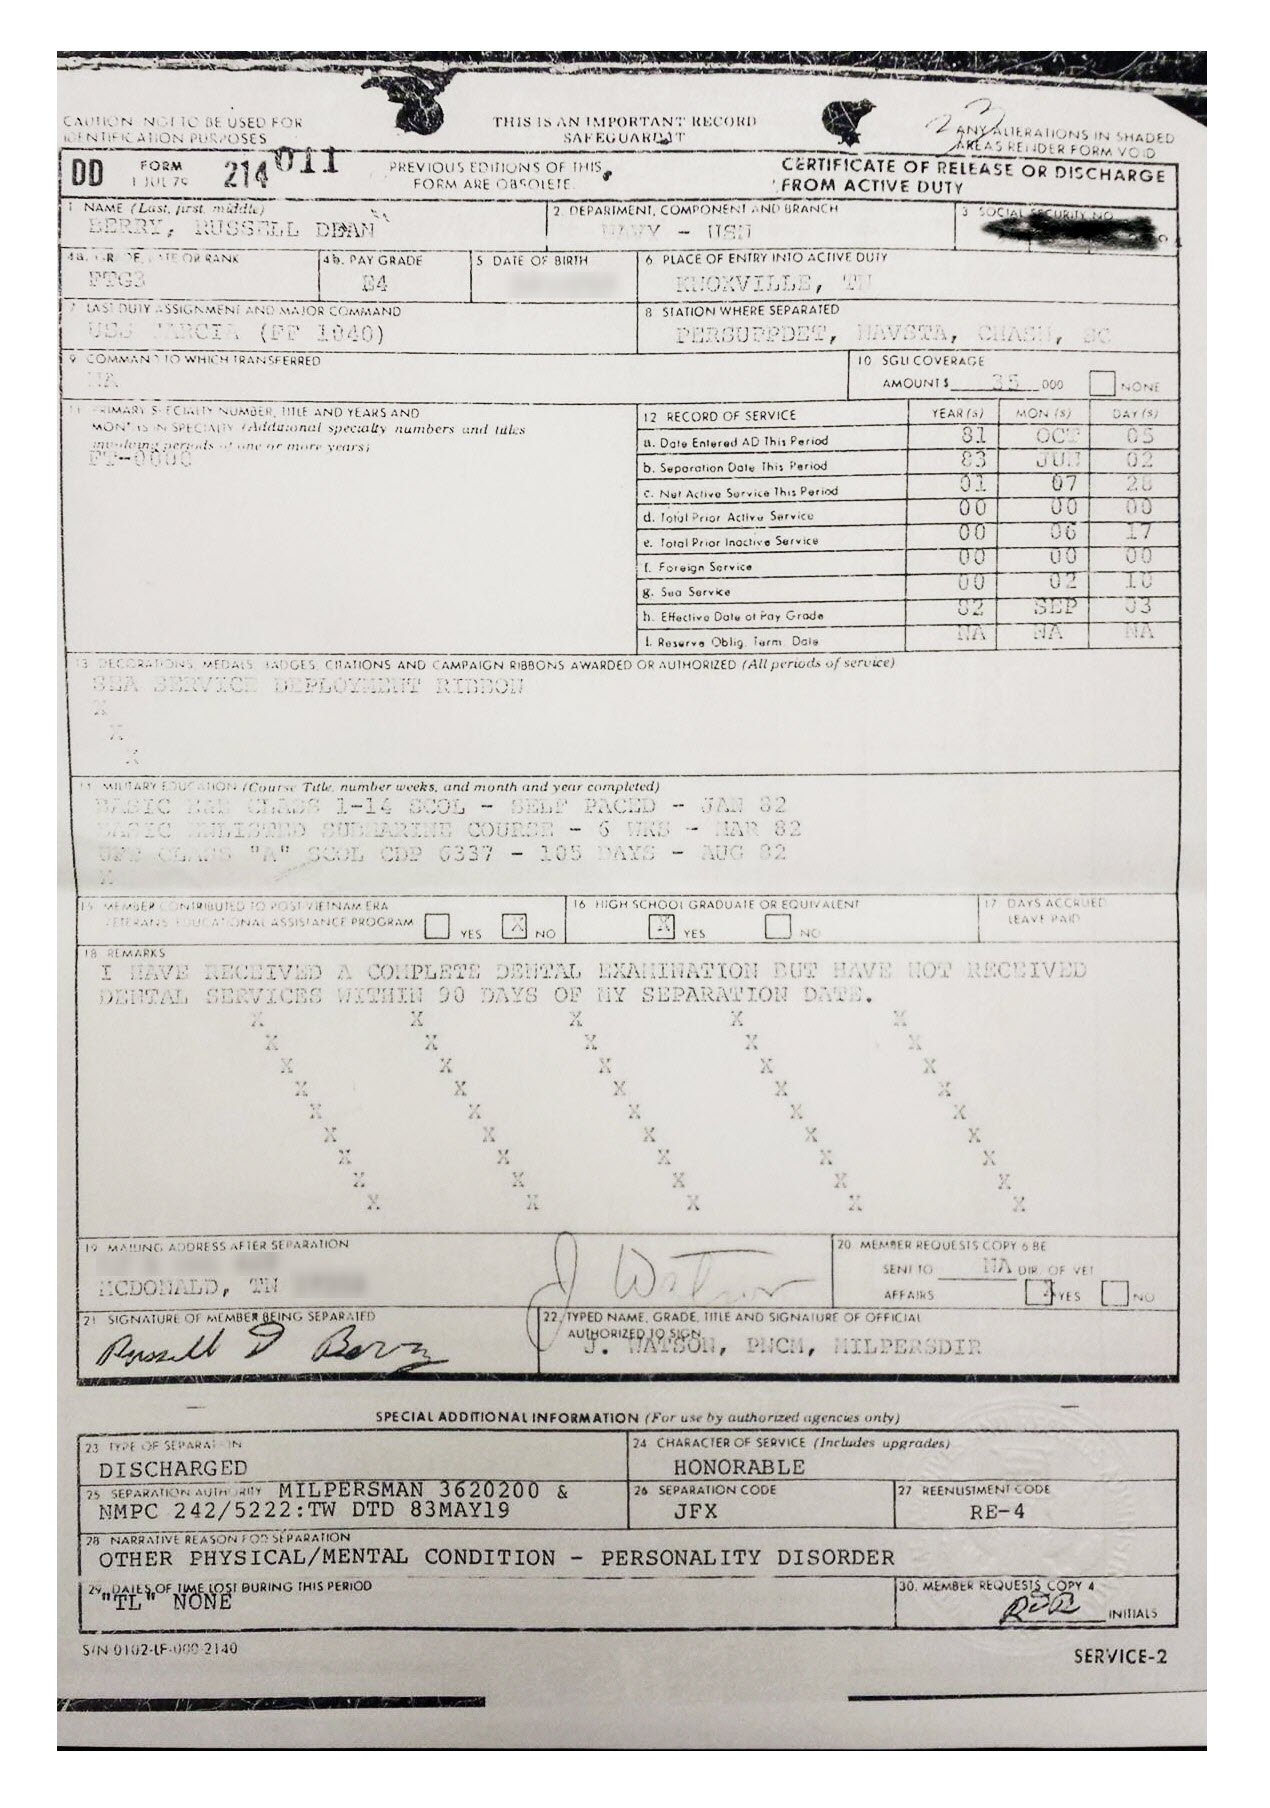 CAUTION NOT TO BE USED FOR
IDENTIFICATION PURPOSES
THIS IS AN IMPORTANT RECORD
SAFEGUARD IT
ANY ALTERATIONS IN SHADED
AREAS RENDER FORM VOID
DD FORM 214 011
1 JUL 79
PREVIOUS EDITIONS OF THIS
FORM ARE OBSOLETE.
CERTIFICATE OF RELEASE OR DISCHARGE
FROM ACTIVE DUTY
1 NAME (Last, first, middle)
BERRY, RUSSELL DEAN
2. DEPARTMENT, COMPONENT AND BRANCH
NAVY - USN
3 SOCIAL SECURITY NO.
4a. GRADE, RATE OR RANK
FTG3
4b. PAY GRADE
E4
5 DATE OF BIRTH
6 PLACE OF ENTRY INTO ACTIVE DUTY
KNOXVILLE, TN
7 LAST DUTY ASSIGNMENT AND MAJOR COMMAND
USS GARCIA (FF 1040)
8 STATION WHERE SEPARATED
PERSUPPDET, NAVSTA, CHASN, SC
9 COMMAND TO WHICH TRANSFERRED
NA
10 SGLI COVERAGE
AMOUNT $ 35 000 NONE
11 PRIMARY SPECIALTY NUMBER, TITLE AND YEARS AND
MONTHS IN SPECIALTY (Additional specialty numbers and titles
involving periods of one or more years)
FT-0000
12 RECORD OF SERVICE YEAR (s) MON (s) DAY (s)
a. Date Entered AD This Period 81 OCT 05
b. Separation Date This Period 83 JUN 02
c. Net Active Service This Period 01 07 28
d. Total Prior Active Service 00 00 00
e. Total Prior Inactive Service 00 06 17
f. Foreign Service 00 00 00
g. Sea Service 00 02 10
h. Effective Date of Pay Grade 82 SEP 03
i. Reserve Oblig. Term. Date NA NA NA
13 DECORATIONS, MEDALS, BADGES, CITATIONS AND CAMPAIGN RIBBONS AWARDED OR AUTHORIZED (All periods of service)
SEA SERVICE DEPLOYMENT RIBBON
X
X
X
14 MILITARY EDUCATION (Course Title, number weeks, and month and year completed)
BASIC E&E CLASS 1-14 SCOL - SELF PACED - JAN 82
BASIC ENLISTED SUBMARINE COURSE - 6 WKS - MAR 82
CLASS "A" SCOL CDP 6337 - 105 DAYS - AUG 82
X
15 MEMBER CONTRIBUTED TO POST-VIETNAM ERA
VETERANS EDUCATIONAL ASSISTANCE PROGRAM YES X NO
16 HIGH SCHOOL GRADUATE OR EQUIVALENT
X YES NO
17 DAYS ACCRUED
LEAVE PAID
18 REMARKS
I HAVE RECEIVED A COMPLETE DENTAL EXAMINATION BUT HAVE NOT RECEIVED
DENTAL SERVICES WITHIN 90 DAYS OF MY SEPARATION DATE.
X X X X X
X X X X X
X X X X X
X X X X X
X X X X X
X X X X X
X X X X X
X X X X X
X X X X X
19 MAILING ADDRESS AFTER SEPARATION
MCDONALD, TN
J Watson
20 MEMBER REQUESTS COPY 6 BE
SENT TO NA DIR. OF VET
AFFAIRS YES NO
21 SIGNATURE OF MEMBER BEING SEPARATED
Russell D Berry
22. TYPED NAME, GRADE, TITLE AND SIGNATURE OF OFFICIAL
AUTHORIZED TO SIGN
J. WATSON, PNCM, MILPERSDIR
SPECIAL ADDITIONAL INFORMATION (For use by authorized agencies only)
23 TYPE OF SEPARATION
DISCHARGED
24 CHARACTER OF SERVICE (Includes upgrades)
HONORABLE
25 SEPARATION AUTHORITY MILPERSMAN 3620200 &
NMPC 242/5222:TW DTD 83MAY19
26 SEPARATION CODE
JFX
27 REENLISTMENT CODE
RE-4
28 NARRATIVE REASON FOR SEPARATION
OTHER PHYSICAL/MENTAL CONDITION - PERSONALITY DISORDER
29. DATES OF TIME LOST DURING THIS PERIOD
"TL" NONE
30. MEMBER REQUESTS COPY 4
RDB INITIALS
S/N 0102-LF-000-2140
SERVICE-2